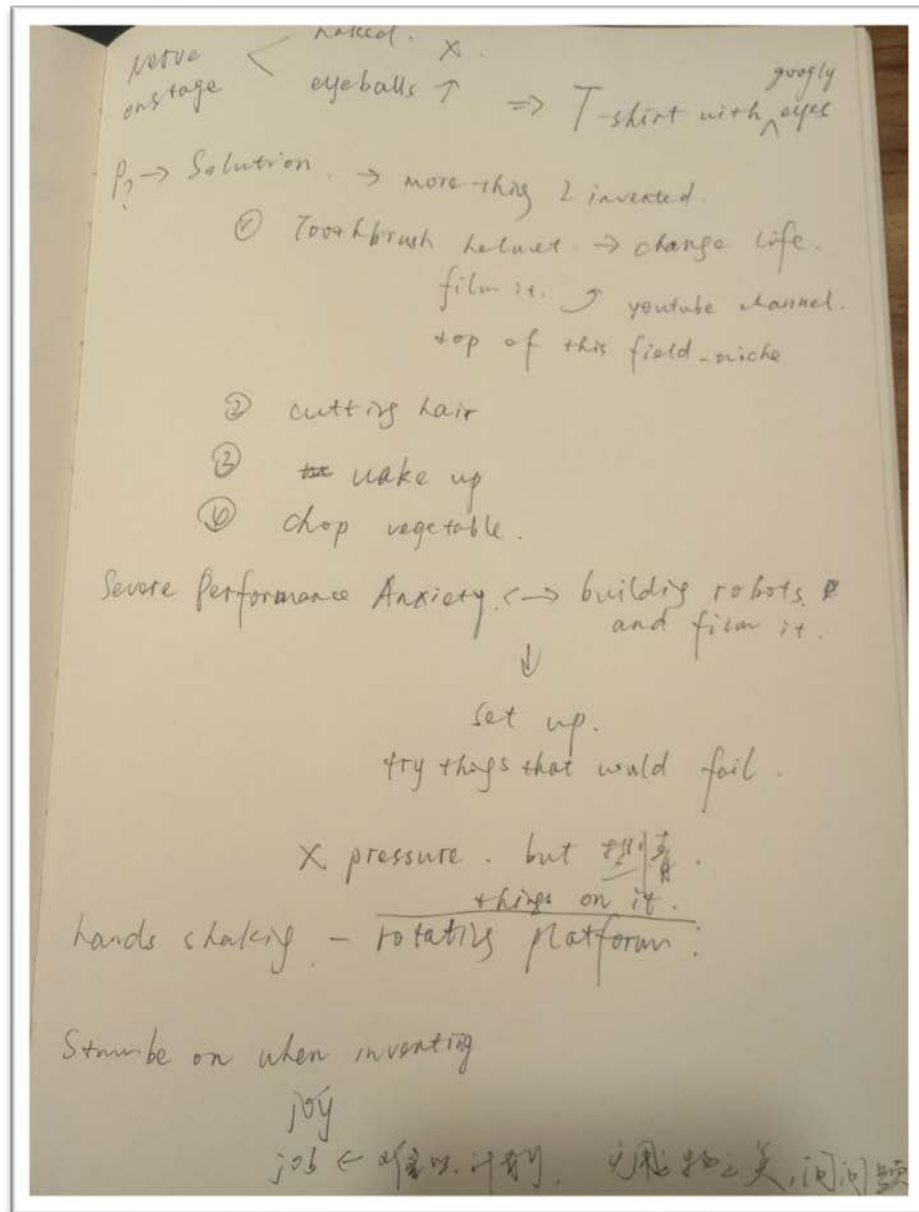 Nerve
onstage < naked. X.
eyeballs ↑ ⇒ T-shirt with ^ googly eyes
P? → Solution. → more thing I invented.
① Toothbrush helmet → change life.
film it. ⤴ youtube channel.
top of this field - niche
② cutting hair
③ wake up
④ chop vegetable.
Severe Performance Anxiety. <→ building robots.
and film it.
↓
set up.
try things that would fail.
X pressure. but 热情.
things on it.
hands shaking - rotating platform.
when inventing
joy
job ← 计划. 无用之物之美, 问问题